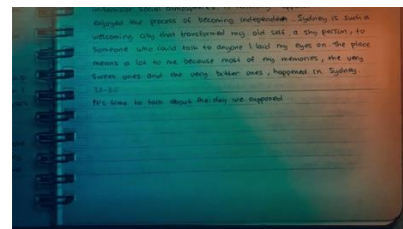 enjoyed the process of becoming independent. Sydney is such a
welcoming city that transformed my old self, a shy person, to
someone who could talk to anyone I laid my eyes on. The place
means a lot to me because most of my memories, the very
sweet ones and the very bitter ones, happened in Sydney.
It's time to talk about the day we